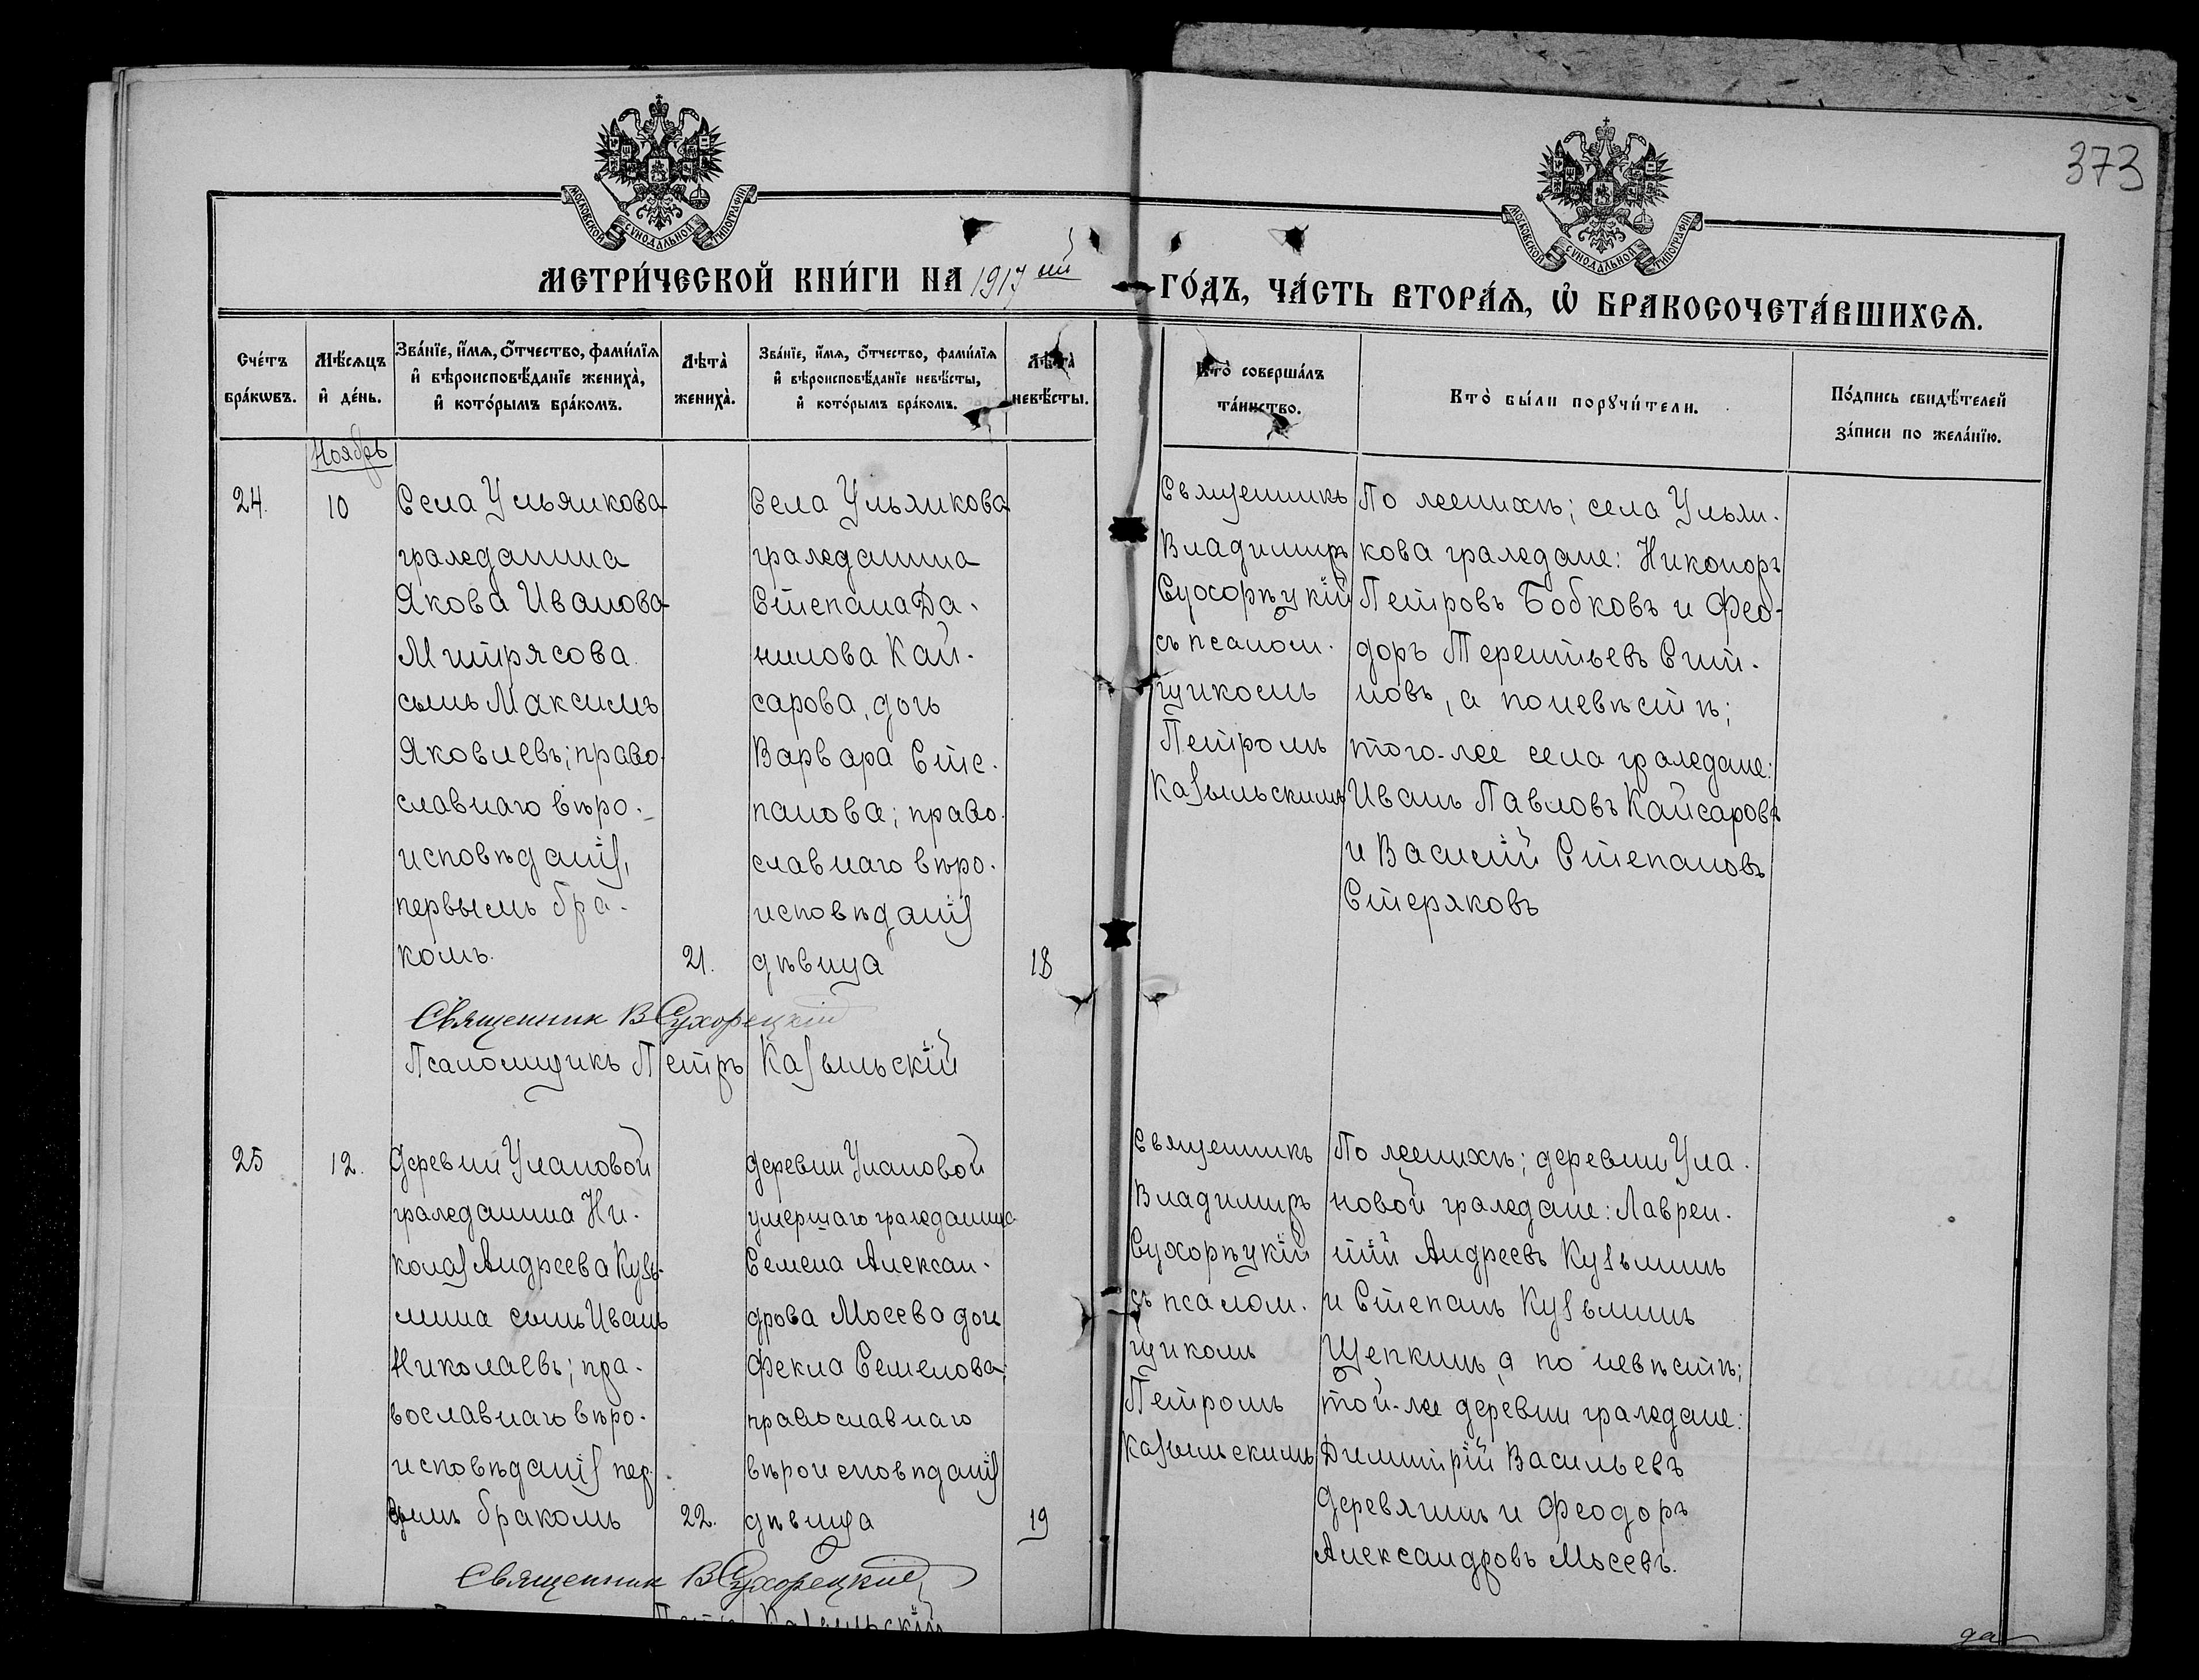 373
МОСКОВСКОЙ СУНОДАЛЬНОЙ ТИПОГРАФІИ
МОСКОВСКОЙ СУНОДАЛЬНОЙ ТИПОГРАФІИ
МЕТРИ́ЧЕСКОЙ КНИ́ГИ НА 1917 ый
ГО́ДЪ, ЧА́СТЬ ВТОРА́Ѧ, Ѡ БРАКОСОЧЕТА́ВШИХСѦ.
Сче́тъ
бра́кѡвъ.
Мѣ́сѧцъ
и҆ де́нь.
Зва́нїе, и҆́мѧ, ѻ҆́тчество, фами́лїѧ
и҆ вѣроисповѣ́данїе жениха̀,
и҆ кото́рымъ бра́комъ.
Лѣта̀
жениха̀.
Зва́нїе, и҆́мѧ, ѻ҆́тчество, фами́лїѧ
и҆ вѣроисповѣ́данїе невѣ́сты,
и҆ кото́рымъ бра́комъ.
Лѣта̀
невѣ́сты.
Кто̀ соверша́лъ
та́инство.
Кто̀ бы́ли порꙋчи́тели.
По́дпись свидѣ́телей
за́писи по жела́нїю.
Ноябрь
24.
10
Села Ульянкова
гражданина
Якова Иванова
Митрясова
сынъ Максимъ
Яковлевъ; право-
славнаго вѣро-
исповѣданія,
первымъ бра-
комъ.
21.
Села Ульянкова
гражданина
Степана Да-
нилова Кай-
сарова, дочь
Варвара Сте-
панова; право-
славнаго вѣро-
исповѣданія
дѣвица
18
Священникъ
Владимиръ
Сухорѣцкій
съ псалом-
щикомъ
Петромъ
Казыльскимъ
По женихѣ; села Ульян-
кова граждане: Никоноръ
Петровъ Бобковъ и Фео-
доръ Терентьевъ
а по невѣстѣ;
того-же села граждане:
Иванъ Павловъ Кайсаровъ
и Василій Степановъ
Стеряковъ
Священник В Сухорецкій
Псаломщикъ Петръ Казыльскій
25
12.
Деревни Улановой
гражданина Ни-
колая Андреева Кузь-
мина сынъ Иванъ
Николаевъ; пра-
вославнаго вѣро-
исповѣданія пер-
вымъ бракомъ
22.
деревни Улановой
умершаго гражданина
Семена Алексан-
дрова Мосеева дочь
Фекла Семенова;
православнаго
вѣроисповѣданія
дѣвица
19
Священникъ
Владимиръ
Сухорѣцкій
съ псалом-
щикомъ
Петромъ
Казыльскимъ
По женихѣ; деревни Ула-
новой граждане: Лаврен-
тій Андреевъ Кузьминъ
и Степанъ Кузьминъ
Щепкинъ, а по невѣстѣ;
той-же деревни граждане:
Димитрій Васильевъ
Деревягинъ и Феодоръ
Александровъ Мосеевъ.
Священник В Сухорецкій
Петръ Казыльскій